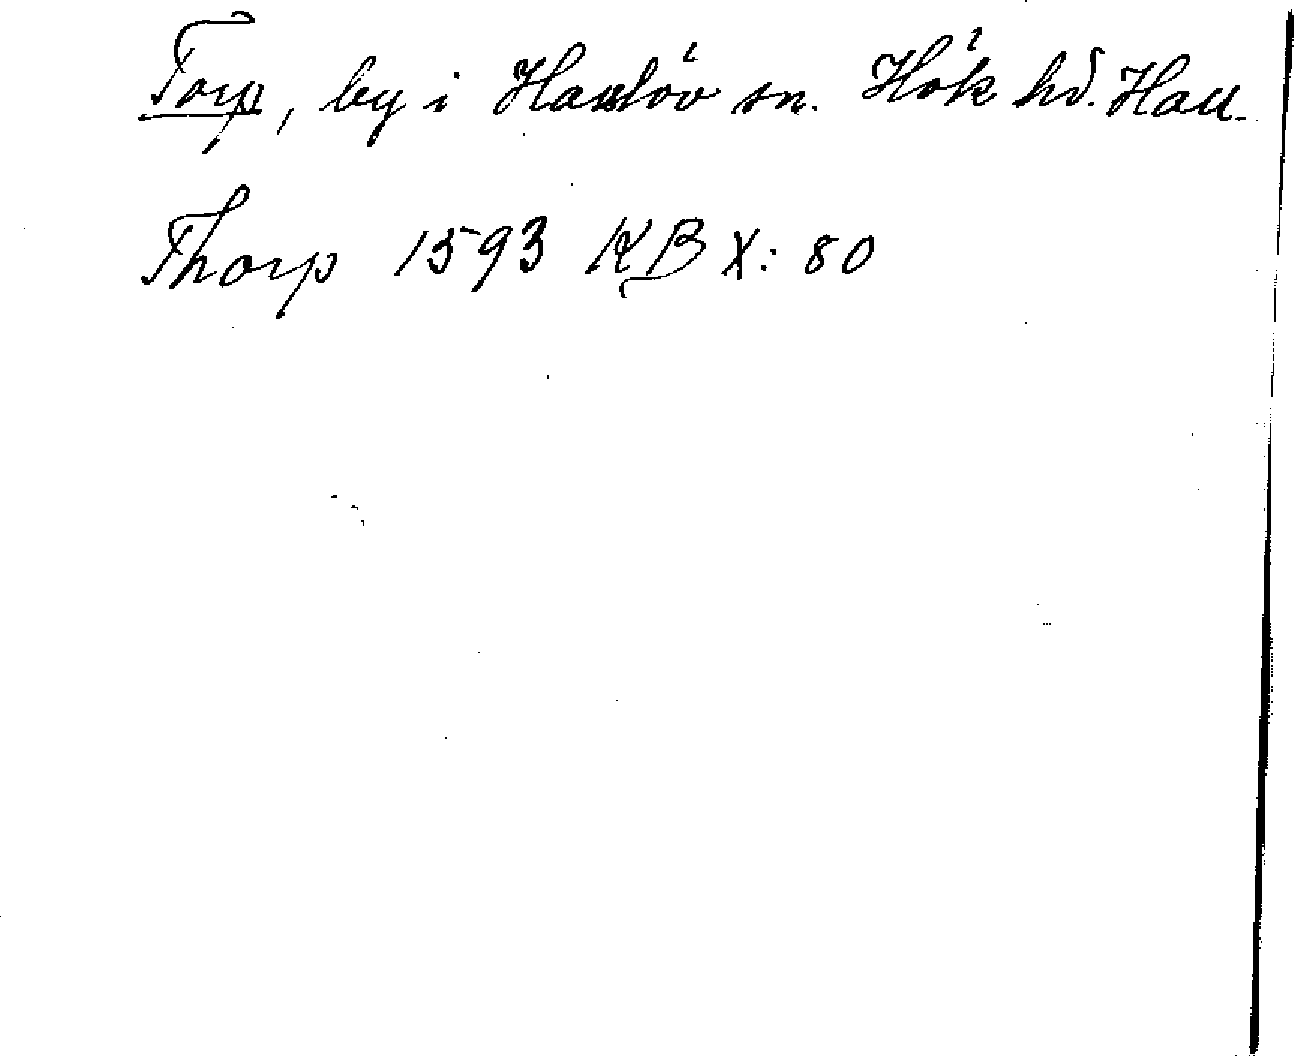 Torp, by i Hasslöv sn. Hök hd. Hall.
Thorp 1593 KB X: 80